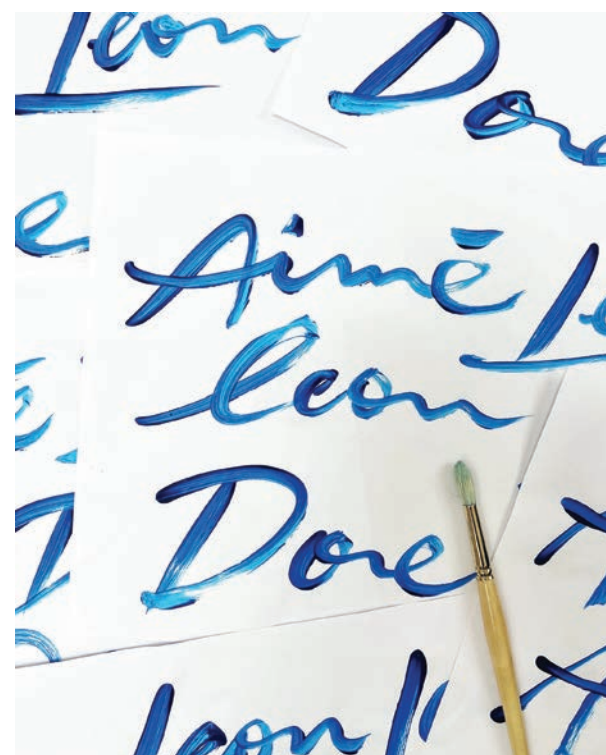 Leon
Dore
e
Aimé
Le
Leon
Dore
Leon